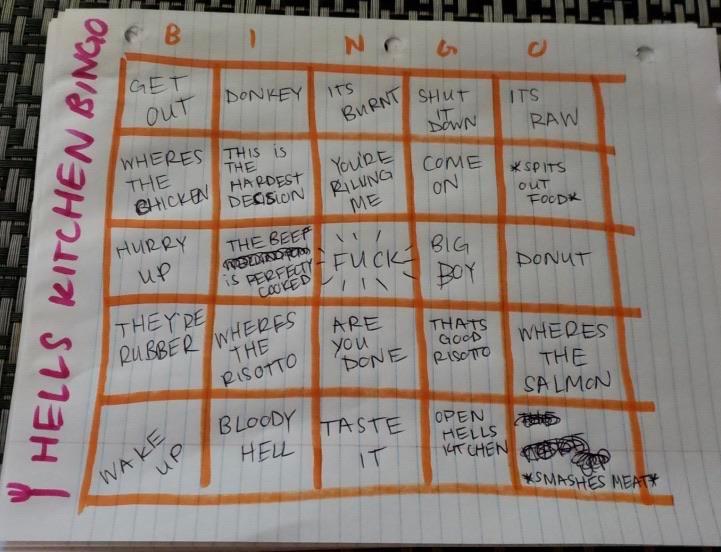 HELLS KITCHEN BINGO
B I N G O
GET
OUT
DONKEY
ITS
BURNT
SHUT
IT
DOWN
ITS
RAW
WHERES
THE
CHICKEN
THIS is
THE
HARDEST
DECISION
YOU'RE
KILLING
ME
COME
ON
*SPITS
OUT
FOOD*
HURRY
UP
THE BEEF
is PERFECTLY
COOKED
FUCK
BIG
BOY
DONUT
THEY'RE
RUBBER
WHERES
THE
RISOTTO
ARE
YOU
DONE
THATS
GOOD
RISOTTO
WHERES
THE
SALMON
WAKE
UP
BLOODY
HELL
TASTE
IT
OPEN
HELLS
KITCHEN
*SMASHES MEAT*